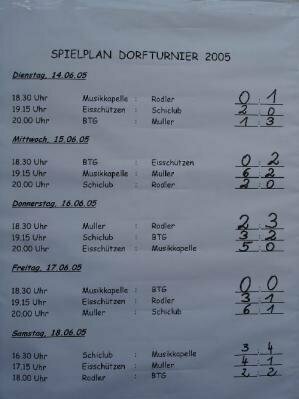 SPIELPLAN DORFTURNIER 2005
Dienstag, 14.06.05
18.30 Uhr Musikkapelle : Rodler 0 : 1
19.15 Uhr Eisschützen : Schiclub 2 : 0
20.00 Uhr BTG : Muller 1 : 3
Mittwoch, 15.06.05
18.30 Uhr BTG : Eisschützen 0 : 2
19.15 Uhr Musikkapelle : Muller 6 : 2
20.00 Uhr Schiclub : Rodler 2 : 0
Donnerstag, 16.06.05
18.30 Uhr Muller : Rodler 2 : 3
19.15 Uhr Schiclub : BTG 3 : 2
20.00 Uhr Eisschützen : Musikkapelle 5 : 0
Freitag, 17.06.05
18.30 Uhr Musikkapelle : BTG 0 : 0
19.15 Uhr Eisschützen : Rodler 3 : 1
20.00 Uhr Muller : Schiclub 6 : 1
Samstag, 18.06.05
16.30 Uhr Schiclub : Musikkapelle 3 : 4
17.15 Uhr Eisschützen : Muller 4 : 1
18.00 Uhr Rodler : BTG 2 : 2